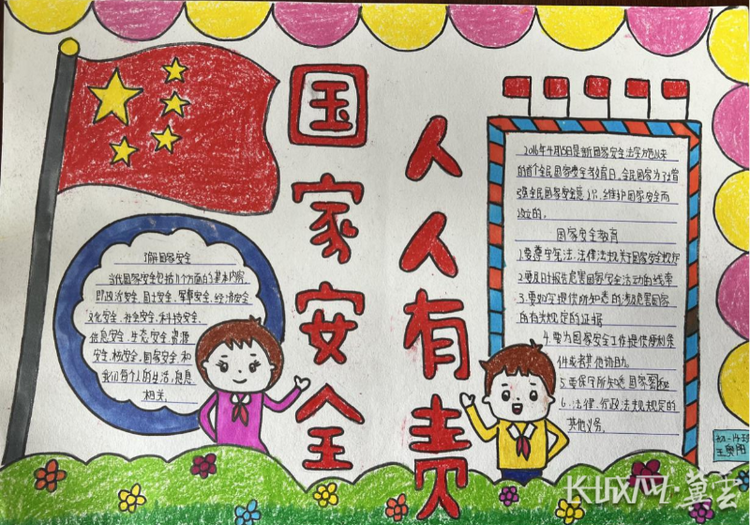 国家安全
人人有责
了解国家安全
当代国家安全包括11个方面的基本内容,
即政治安全、国土安全、军事安全、经济安全
文化安全、社会安全、科技安全、
信息安全、生态安全、资源
安全、核安全。国家安全和
我们每个人的生活,息息
相关。
2016年4月15日是新国家安全法学习以来
的首个全民国家安全教育日。全民国家为了增
强全民国家安全意识,维护国家安全而
设立的。
国家安全教育
1.要遵守宪法、法律法规关于国家安全
2.要及时报告危害国家安全活动的线索
3.要如实提供所知悉的涉及危害国家
的有关规定的证据
4.要为国家安全工作提供便利条
件或者其他协助。
5.要保守所知悉国家秘密
6.法律、行政法规规定的
其他义务。
初一14班
长城网·冀云